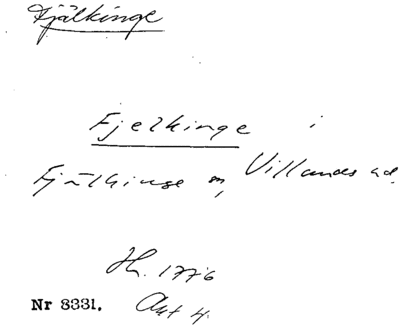 Fjälkinge
Fjelkinge i
Fjälkinge sn, Villands hd.
Hn. 1776
Nr 8331. Akt 4.